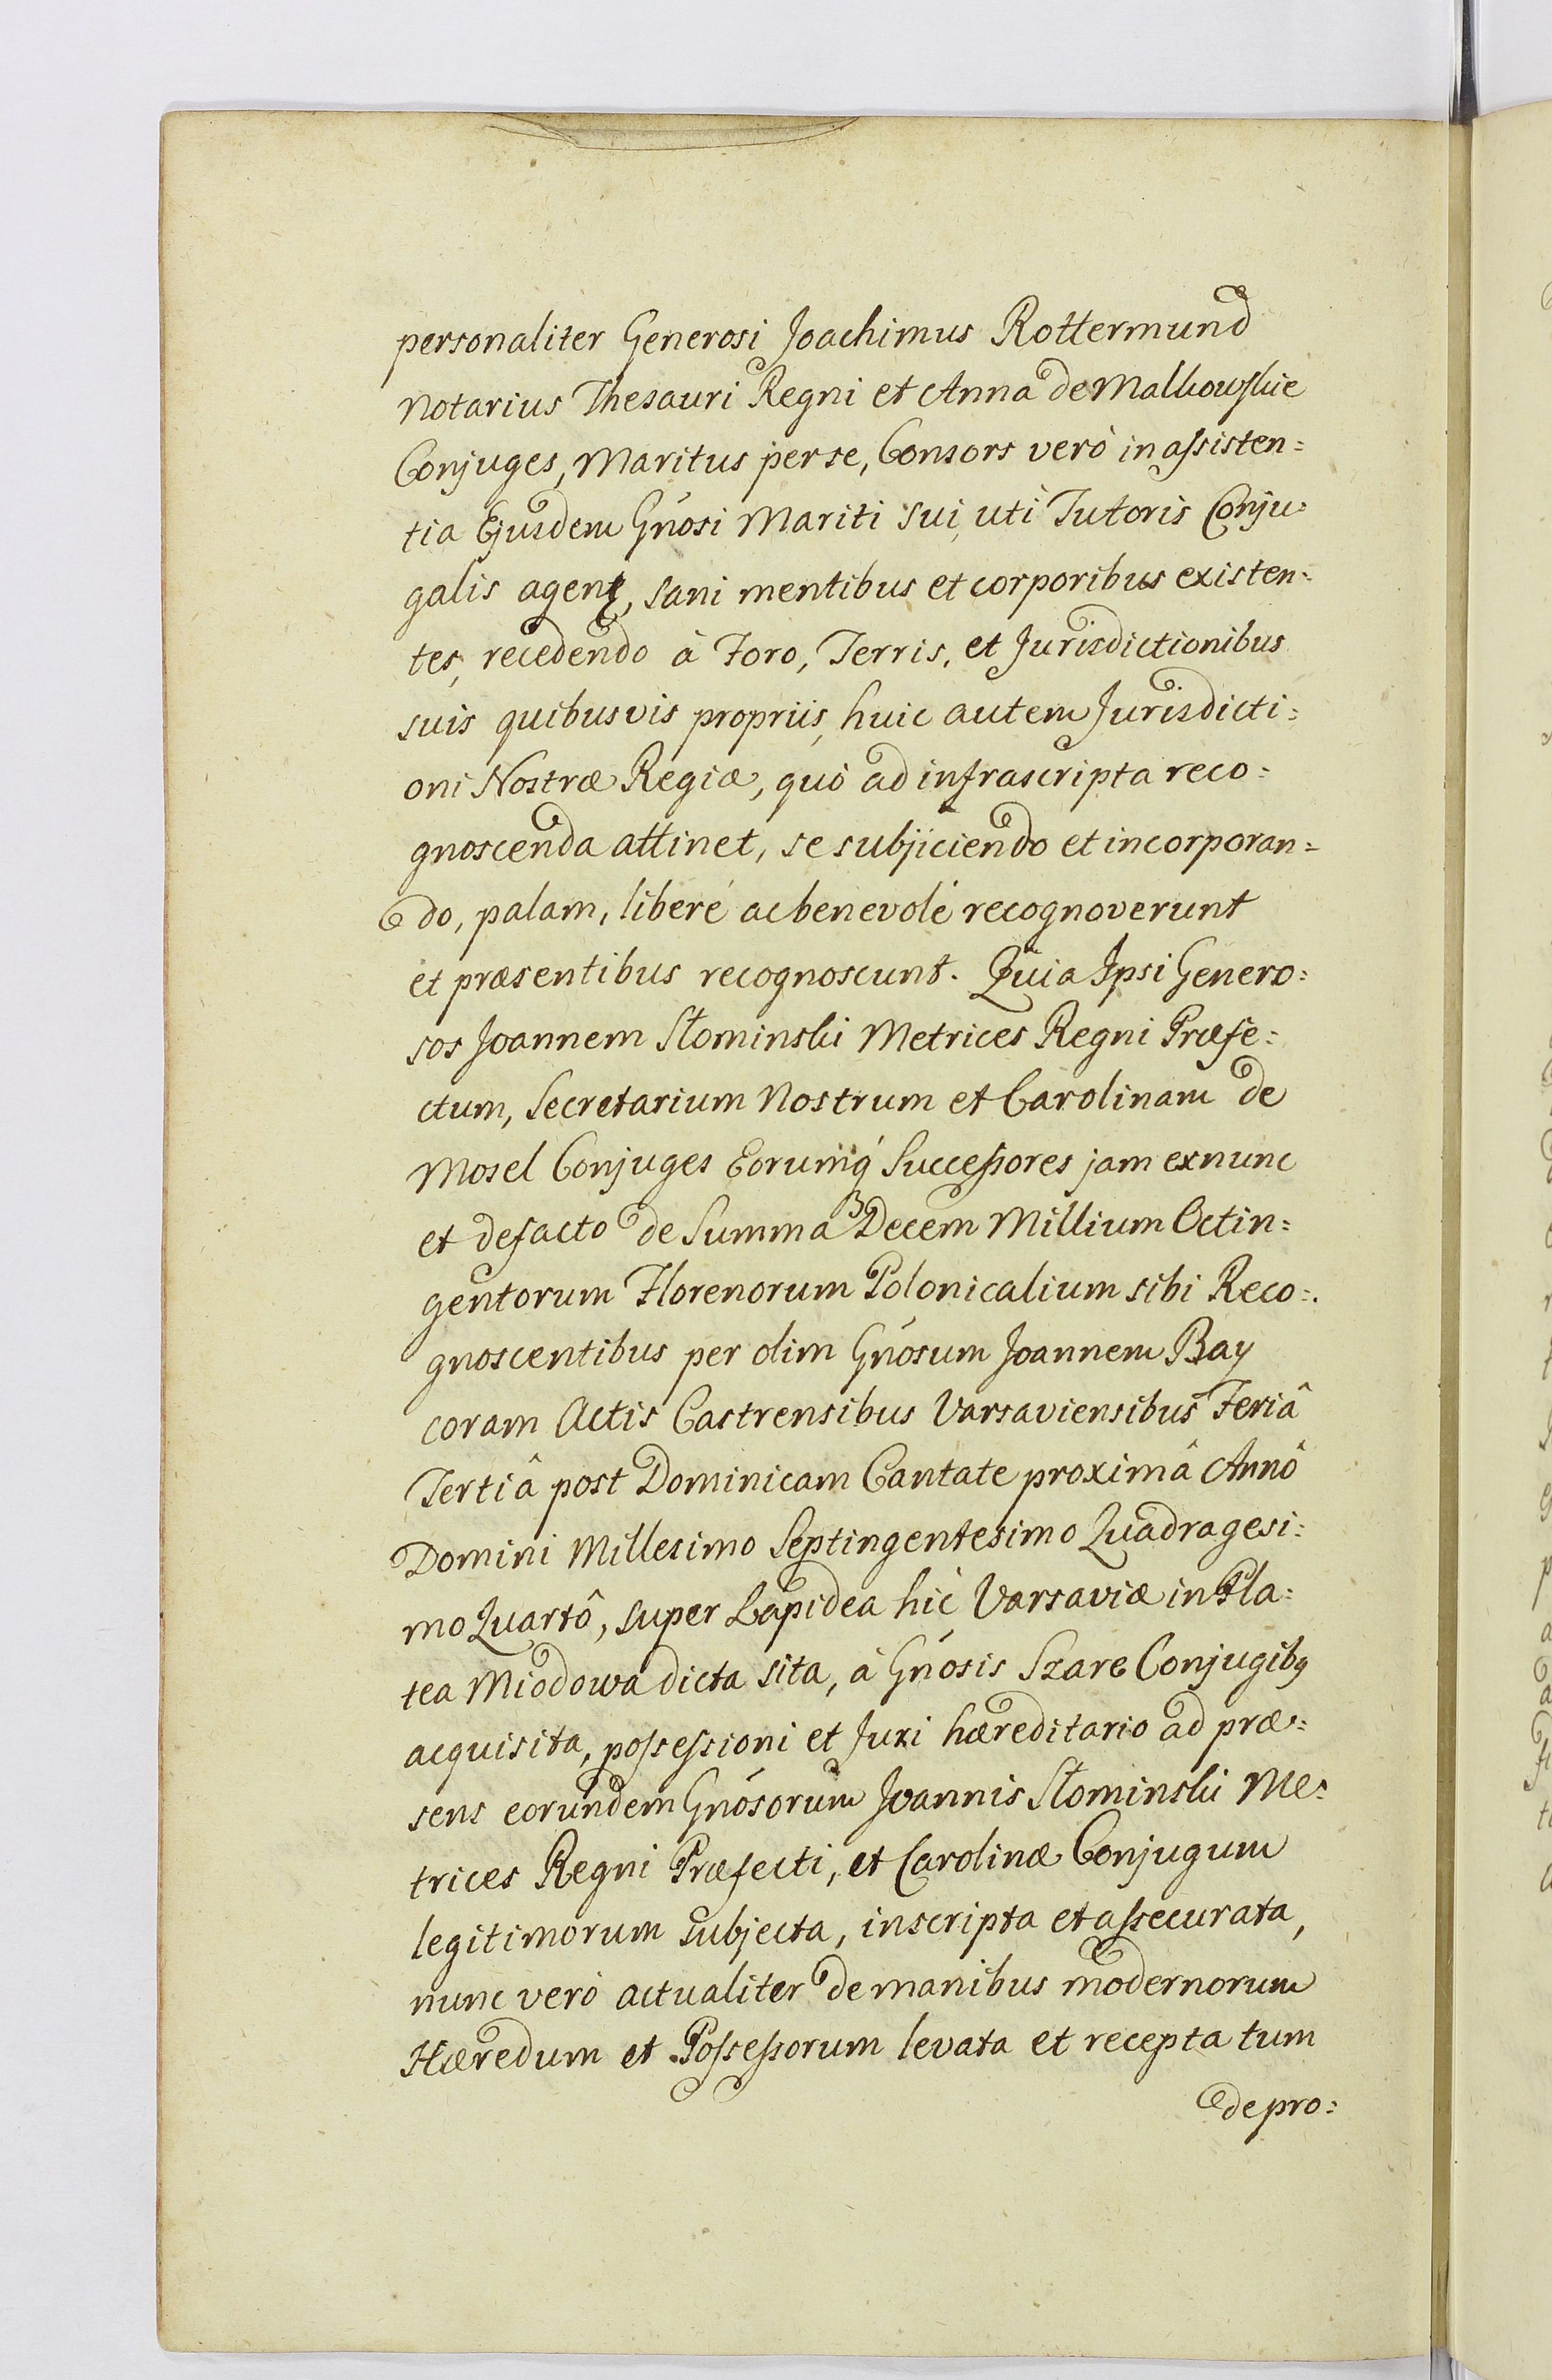 personaliter Generosi Joachimus Rottermund
Notarius Thesauri Regni et Anna de Malkowskie
Conjuges, Maritus per se, Consors verò in aſsisten=
tia Ejusdem Gńosi Mariti sui, uti Tutoris Conju=
galis agens, sani mentibus et corporibus existen=
tes, recedendo à Foro, Terris, et Jurisdictionibus
suis quibusvis propriis, huic autem Jurisdicti=
oni Nostræ Regiæ, quò ad infrascripta reco=
gnoscenda attinet, se subjiciendo et incorporan=
do, palam, liberé ac benevolé recognoverunt
et præsentibus recognoscunt. Quia Ipsi Genero=
sos Joannem Słominski Metrices Regni Præfe=
ctum, Secretarium Nostrum et Carolinam de
Mosel Conjuges Eorumq́ Succeſsores jam ex nunc
et defacto de Summa Decem Millium Octin=
gentorum Florenorum Polonicalium sibi Reco=
gnoscentibus per olim Gńosum Joannem Bay
coram Actis Castrensibus Varsaviensibus Feriâ
Tertiâ post Dominicam Cantate proximâ Annô
Domini Millesimo Septingentesimo Quadragesi=
mo Quartô, super Lapidea hic Varsaviæ in Pla=
tea Miodowa dicta sita, à Gńosis Szare Conjugibq
acquisita, poſseſsioni et Juri hæreditario ad præ=
sens eorundem Gńosorum Joannis Słominski Me=
trices Regni Præfecti, et Carolinæ Conjugum
legitimorum subjecta, inscripta et aſsecurata,
nunc verò actualiter de manibus modernorum
Hæredum et Poſseſsorum levata et recepta tum
de pro=